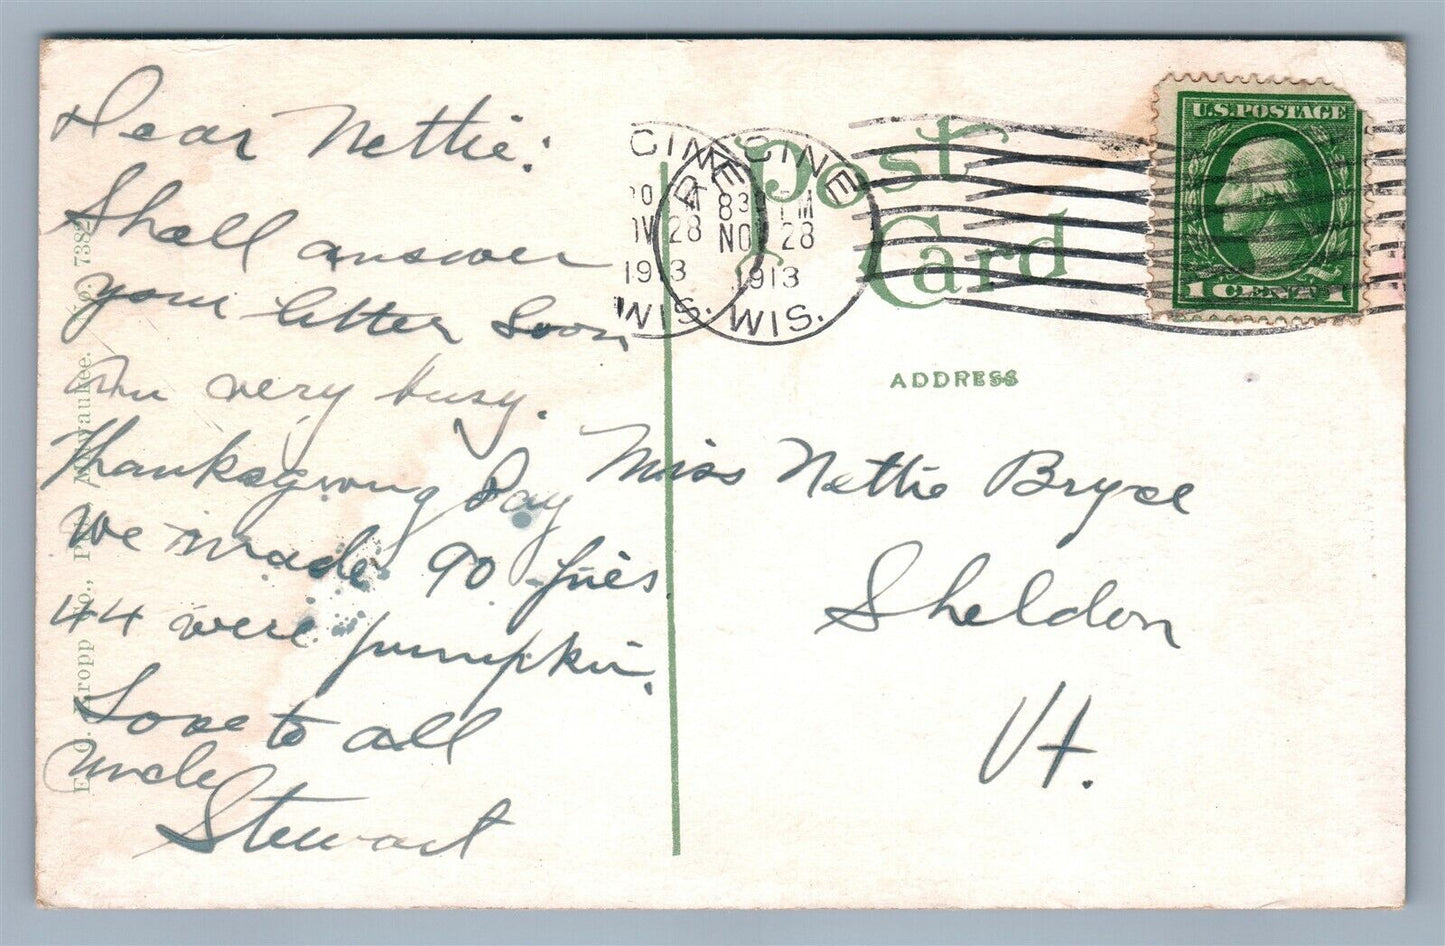 Dear Nettie:
Shall answer
your letter soon,
Am very busy.
Thanksgiving Day
We made 90 pies
44 were pumpkin.
Love to all
Uncle
Stewart
Post
Card
CINE
RACINE
830 PM
NOV 28
1913
WIS.
WIS.
U.S. POSTAGE
1 CENT 1
ADDRESS
Miss Nettie Bryce
Sheldon
Vt.
E. C. Kropp Co., Pub., Milwaukee. No. 7382